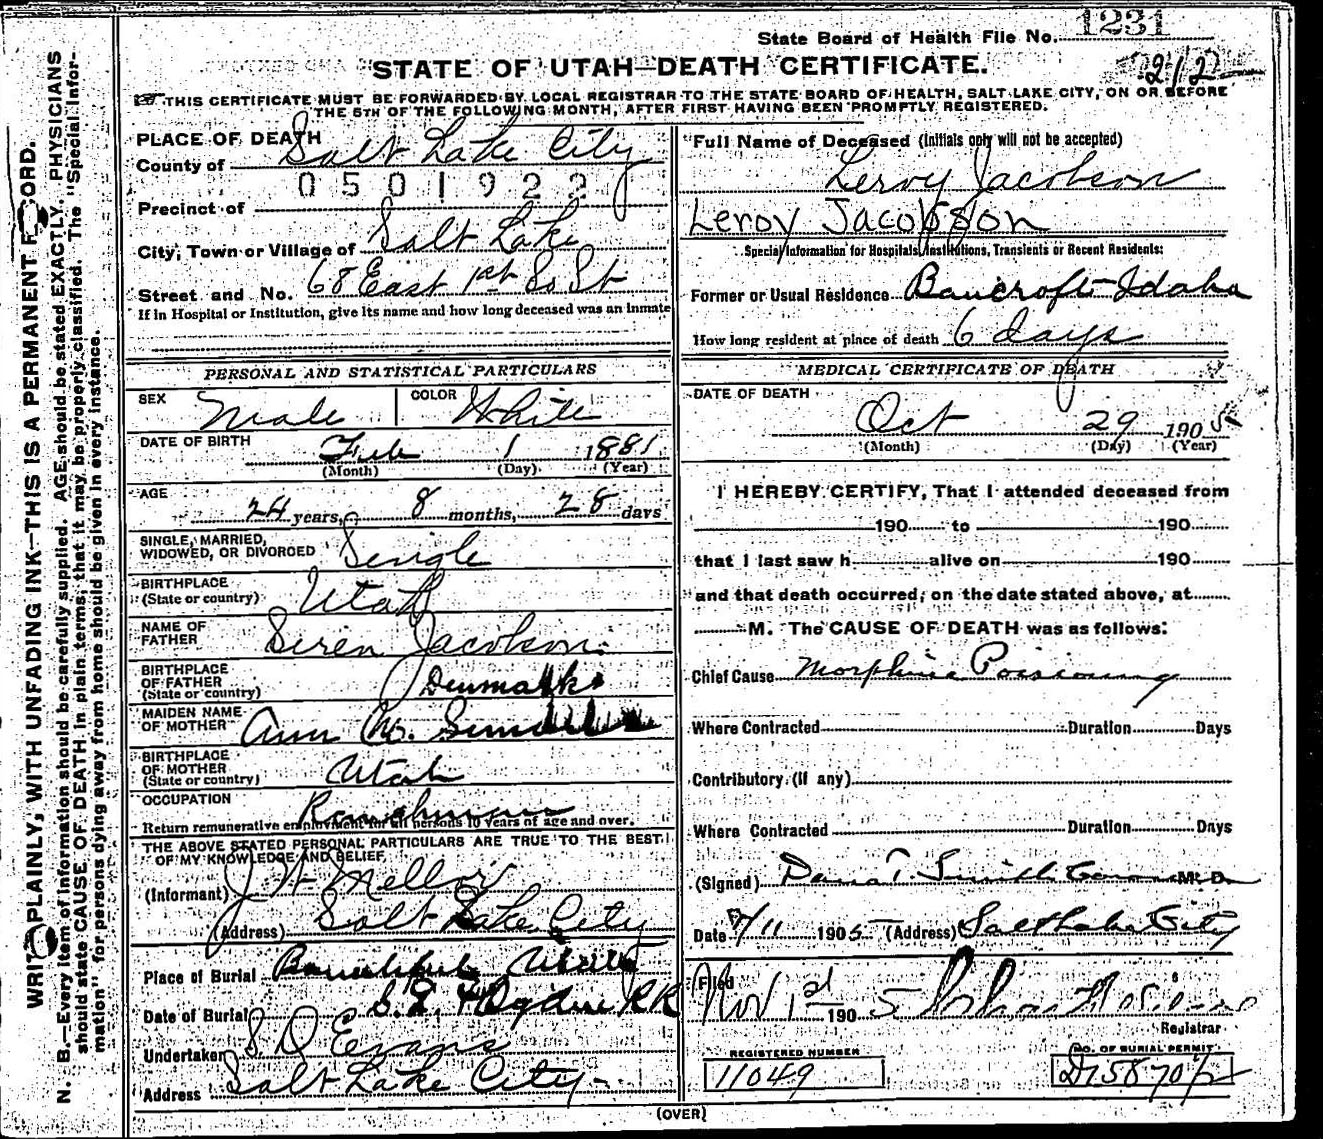 State Board of Health File No. 1231
212
STATE OF UTAH—DEATH CERTIFICATE.
THIS CERTIFICATE MUST BE FORWARDED BY LOCAL REGISTRAR TO THE STATE BOARD OF HEALTH, SALT LAKE CITY, ON OR BEFORE
THE 5TH OF THE FOLLOWING MONTH, AFTER FIRST HAVING BEEN PROMPTLY REGISTERED.
WRITE PLAINLY, WITH UNFADING INK—THIS IS A PERMANENT RECORD.
N. B.—Every item of information should be carefully supplied. AGE should be stated EXACTLY. PHYSICIANS
should state CAUSE OF DEATH in plain terms, that it may be properly classified. The "Special Infor-
mation" for persons dying away from home should be given in every instance.
PLACE OF DEATH
County of Salt Lake City
0501922
Precinct of
City, Town or Village of Salt Lake
Street and No. 68 East 1st So St
If in Hospital or Institution, give its name and how long deceased was an inmate
PERSONAL AND STATISTICAL PARTICULARS
SEX Male COLOR White
DATE OF BIRTH
Feb 1 1881
(Month) (Day) (Year)
AGE
24 years, 8 months, 28 days
SINGLE, MARRIED,
WIDOWED, OR DIVORCED Single
BIRTHPLACE
(State or country) Utah
NAME OF
FATHER Siren Jacobson
BIRTHPLACE
OF FATHER
(State or country) Denmark
MAIDEN NAME
OF MOTHER Ann M.
BIRTHPLACE
OF MOTHER
(State or country) Utah
OCCUPATION Ranchman
Return remunerative employment for all persons 10 years of age and over.
THE ABOVE STATED PERSONAL PARTICULARS ARE TRUE TO THE BEST
OF MY KNOWLEDGE AND BELIEF
(Informant) J W Mellor
(Address) Salt Lake City
Place of Burial Bountiful Utah
Date of Burial S. L. & Ogden RR
Undertaker S D Evans
Address Salt Lake City
Full Name of Deceased (Initials only will not be accepted)
Leroy Jacobson
Leroy Jacobson
Special Information for Hospitals, Institutions, Transients or Recent Residents:
Former or Usual Residence Bancroft Idaho
How long resident at place of death 6 days
MEDICAL CERTIFICATE OF DEATH
DATE OF DEATH
Oct 29 1905
(Month) (Day) (Year)
I HEREBY CERTIFY, That I attended deceased from
190 to 190
that I last saw h alive on 190
and that death occurred, on the date stated above, at
M. The CAUSE OF DEATH was as follows:
Chief Cause Morphine Poisioning
Where Contracted Duration Days
Contributory (if any)
Where Contracted Duration Days
(Signed) Dana T. Smith M. D.
Date /11 1905 (Address) Salt Lake City
Filed
Nov 1st 1905
Registrar
REGISTERED NUMBER
11049
NO. OF BURIAL PERMIT
D15870
(OVER)